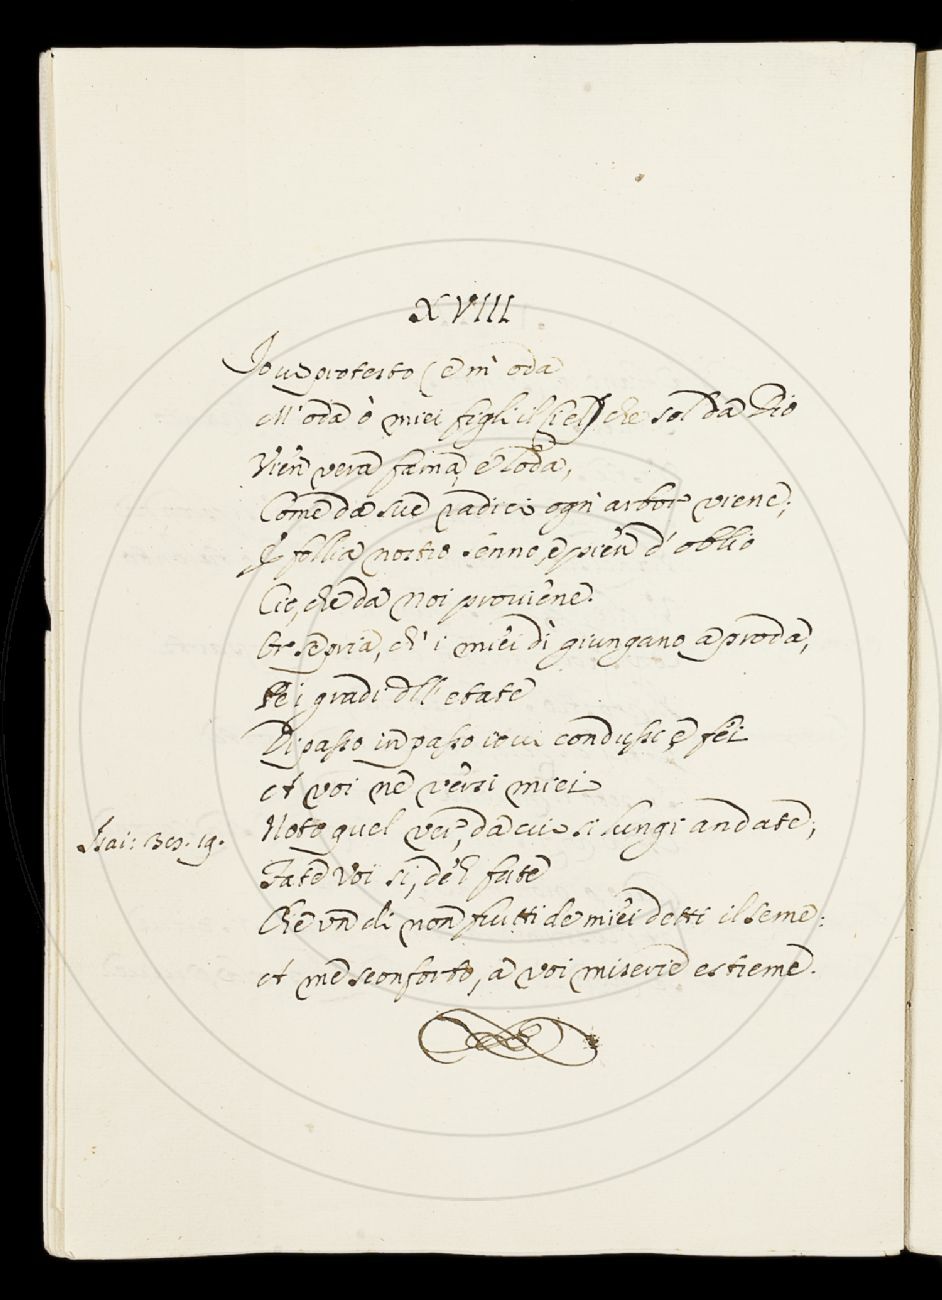 XVIII
Io ue protesto (e m' oda
M' oda ò miei figli il Ciel) che sol da Dio
Vien vera fama, e loda,
Come da sue radici ogni arbor viene;
È follia nostro senno, e pien d' oblio
Ciò, che da noi prouiene.
Or se pria, ch' i miei dì giungano a proda,
Pei gradi dell' etate
Di passo in passo io ui condussi e fei
A voi ne versi miei
Noto quel ver, da cui si lungi andate;
Isai: 30. 19.
Fate voi sì, deh fate
Che un dì non frutti de miei detti il seme:
A me sconforto, a voi miserie estreme.